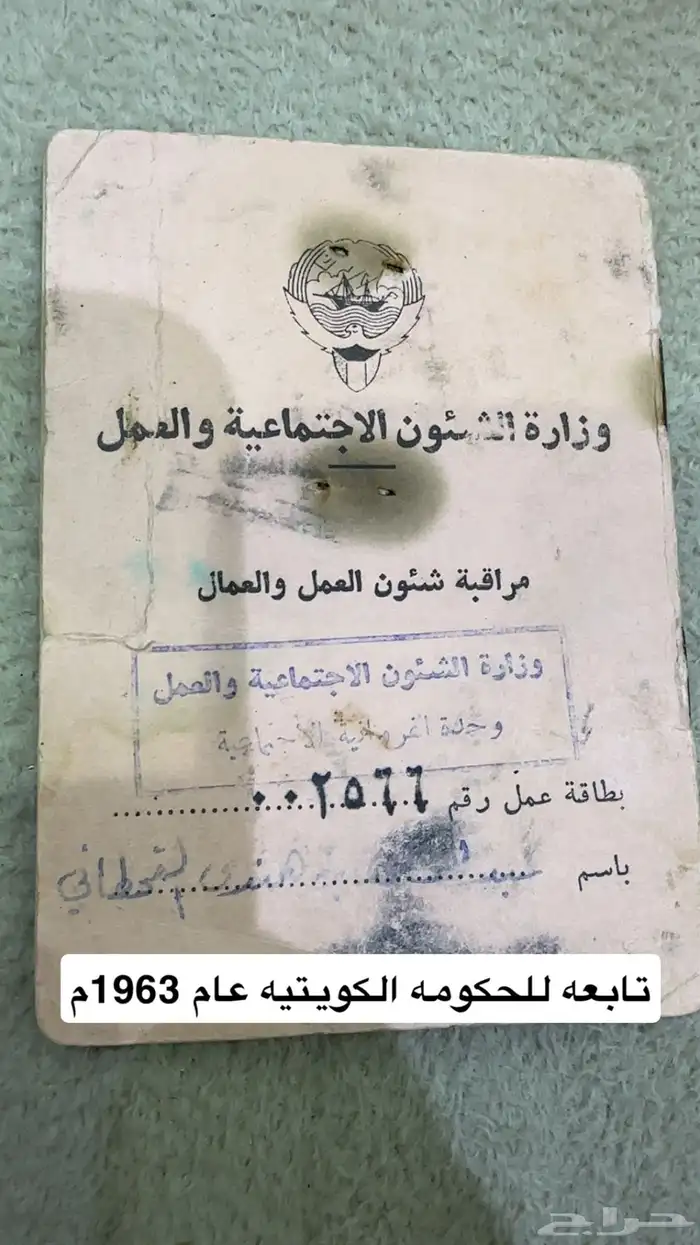 وزارة الشئون الاجتماعية والعمل
مراقبة شئون العمل والعمال
وزارة الشئون الاجتماعية والعمل
وحدة الاجتماعية
بطاقة عمل رقم ٠٠٢٥٦٦
باسم القحطاني
تابعه للحكومه الكويتيه عام 1963م
حراج